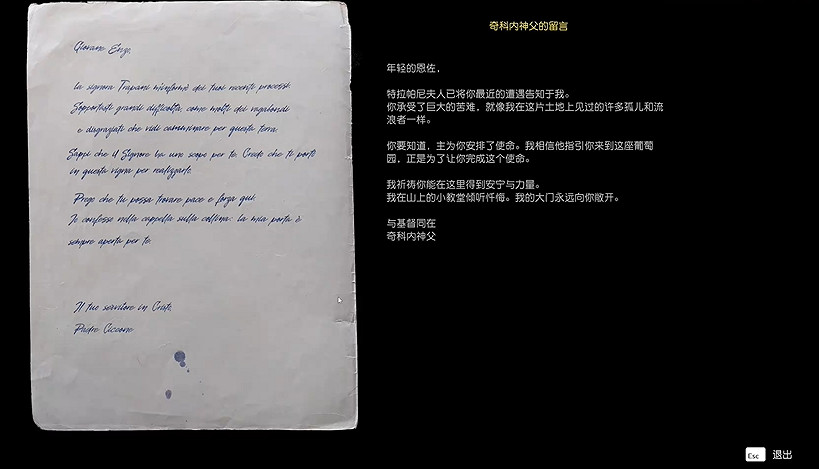 奇科内神父的留言
Giovane Enzo,
La signora Trapani m'informò dei tuoi recenti processi.
Sopportasti grandi difficoltà, come molti dei vagabondi
e disgraziati che vidi camminare per questa terra.
Sappi che il Signore ha uno scopo per te. Credo che ti portò
in questa vigna per realizzarlo.
Prego che tu possa trovare pace e forza qui.
Io confesso nella cappella sulla collina: la mia porta è
sempre aperta per te.
Il tuo servitore in Cristo,
Padre Ciccone
年轻的恩佐，
特拉帕尼夫人已将你最近的遭遇告知于我。
你承受了巨大的苦难，就像我在这片土地上见过的许多孤儿和流
浪者一样。
你要知道，主为你安排了使命。我相信他指引你来到这座葡萄
园，正是为了让你完成这个使命。
我祈祷你能在这里得到安宁与力量。
我在山上的小教堂倾听忏悔。我的大门永远向你敞开。
与基督同在
奇科内神父
Esc 退出